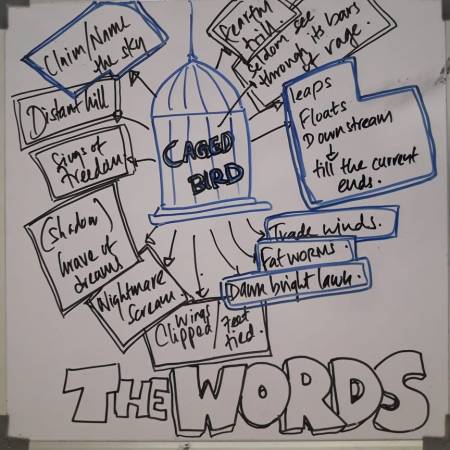 Claim/Name
the sky
Fearful
trill.
Seldom see
through its bars
of rage.
Distant hill
leaps
Floats
Downstream
till the current
ends.
CAGED
BIRD
Sings of
Freedom
(shadow)
Grave of
dreams
Trade winds.
Fat worms.
Dawn bright lawn
Nightmare
scream
Wings
Clipped/
Feet
tied.
THE WORDS